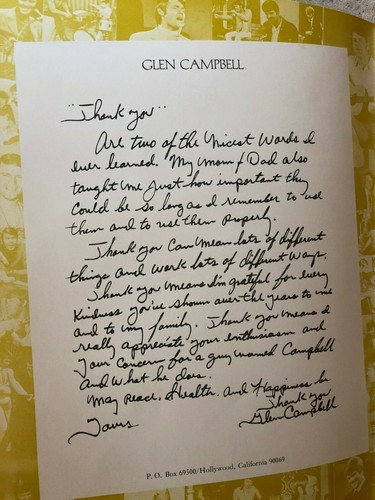 GLEN CAMPBELL
"Thank you"
Are two of the Nicest Words I
ever learned. My Mom & Dad also
taught me just how important they
could be so long as I remember to use
them and to use them properly.
Thank you Can Mean lots of different
things and work lots of different ways.
Thank you Means I'm grateful for every
Kindness you've shown over the years to me
and to my family. Thank you means I
really appreciate your enthusiasm and
your concern for a guy named Campbell
and what he does.
May Peace, Health, and Happiness be
Yours
Thank You
Glen Campbell
P. O. Box 69500/Hollywood, California 90069